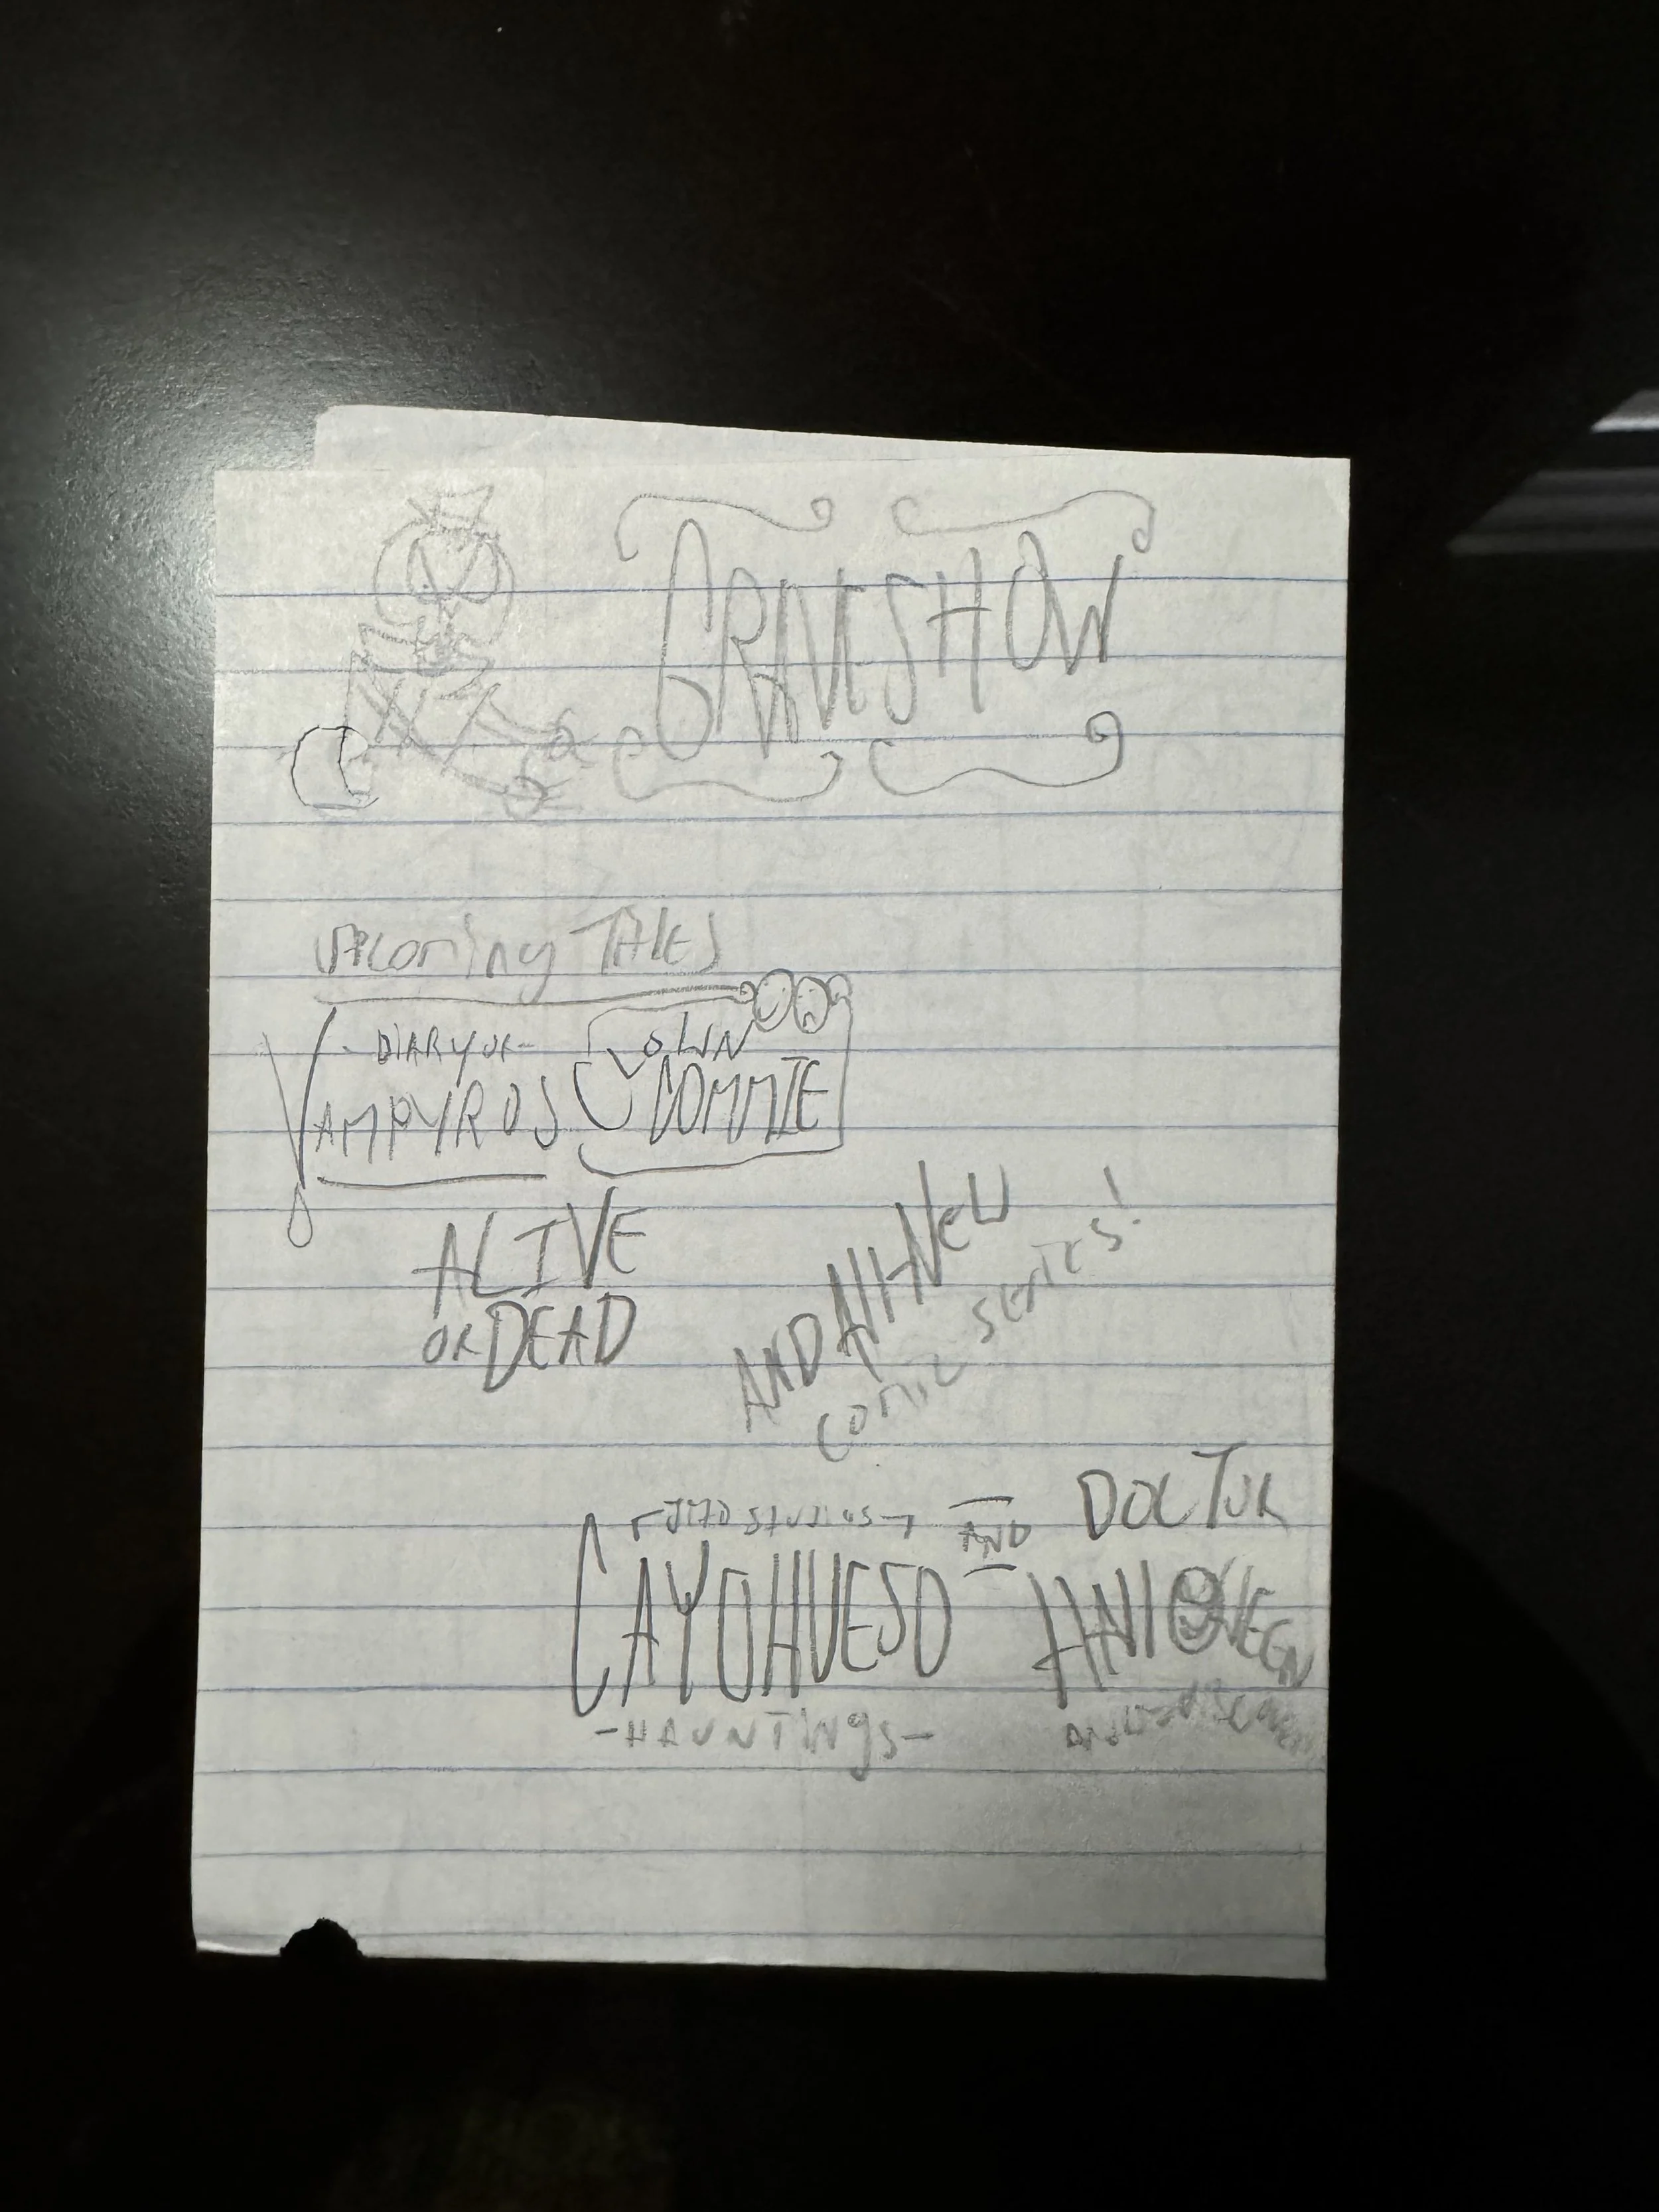 GRAVESHOW
UPCOMiNg TALES
- DiARY OF -
VAMPYROS
CLOWN
COMMIE
ALIVE
OR DEAD
AND All-NeW
COMIC SERIES!
STUDIOS
CAYOHUESO
- HAUNTiNgS -
AND
DOCTUR